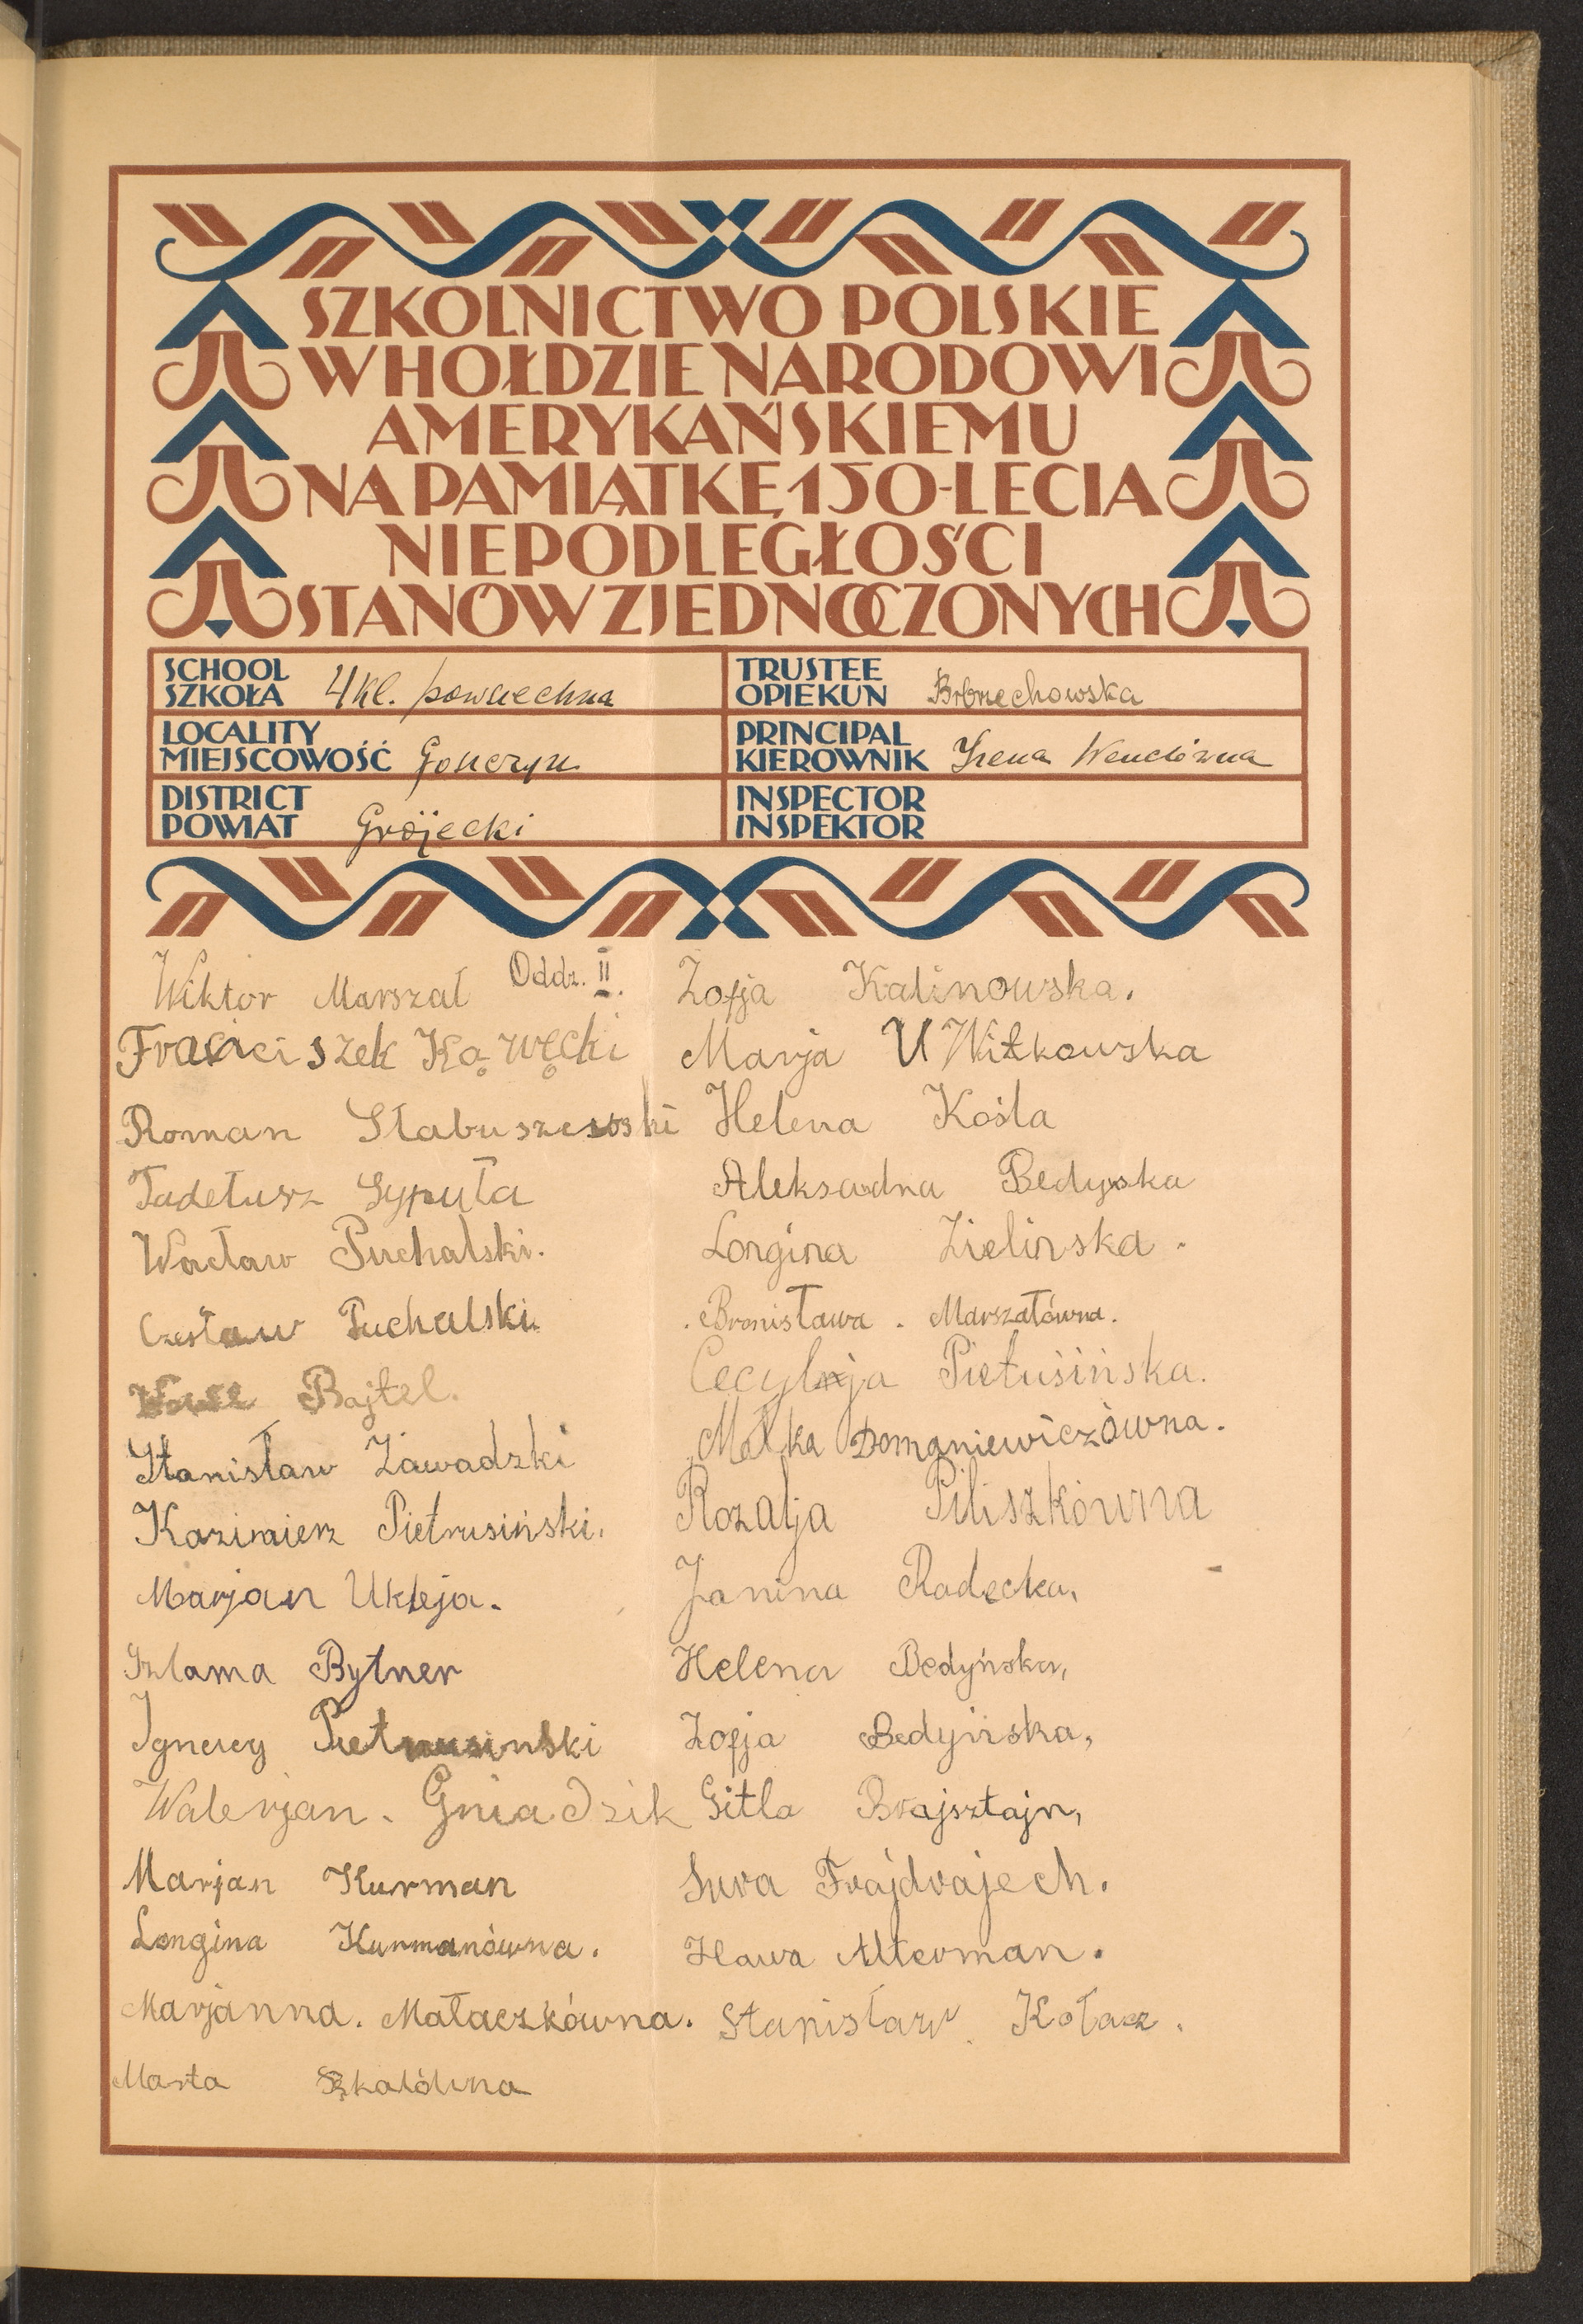 SZKOLNICTWO POLSKIE
W HOŁDZIE NARODOWI
AMERYKAŃSKIEMU
NA PAMIĄTKĘ 150-LECIA
NIEPODLEGŁOŚCI
STANÓW ZJEDNOCZONYCH
SCHOOL
SZKOŁA 4 kl. powszechna
TRUSTEE
OPIEKUN
LOCALITY
MIEJSCOWOŚĆ Gończyn
PRINCIPAL
KIEROWNIK Irena Wendówna
DISTRICT
POWIAT Grójecki
INSPECTOR
INSPEKTOR
Oddz. II.
Wiktor Marszał
Franciszek Kąwęcki
Roman Słabuszewski
Tadełusz Sypuła
Wacław Puchalski.
Czesław Puchalski.
Bajtel.
Stanisław Zawadzki
Kazimierz Pietrusiński.
Marjan Ukleja.
Szlama Bytner
Ignacy Pietrusinski
Walerjan. Gniadzik
Marjan Kurman
Longina Kurmanówna.
Marjanna. Małaczkówna.
Marta Szkalówna
Zofja Kalinowska.
Marja U Witkowska
Helena Kośla
Aleksadna Bedyska
Longina Zielinska.
Bronisława. Marszałówna.
Cecylja Pietusińska.
Małka Domaniewiczówna.
Rozalja Piliszkówna
Janina Radecka,
Helena Bedyńska,
Zofja Bedyńska,
Gitla Brajsztajn,
Sura Frajdrajech.
Hawa Alterman.
Stanisław. Kołacz.